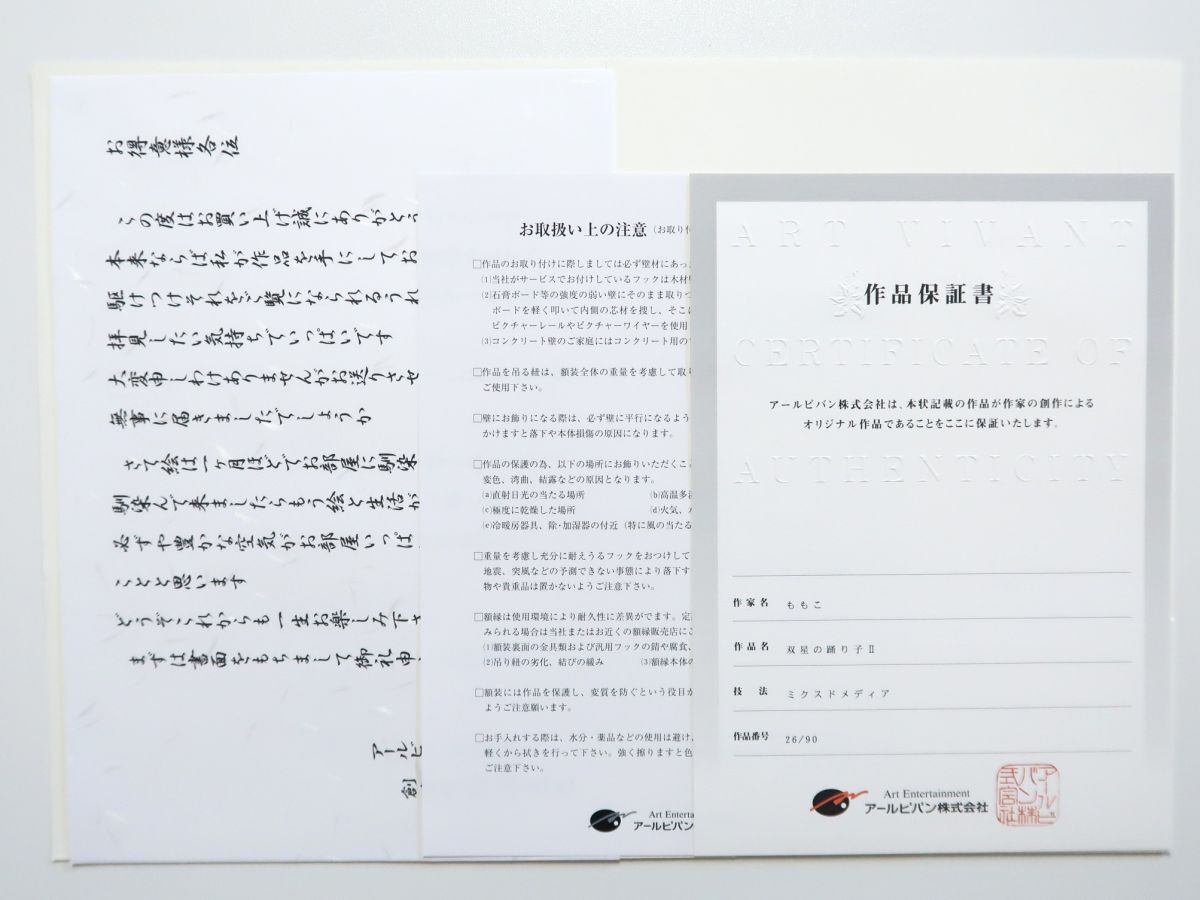 お得意様各位
この度はお買い上げ誠にありがとう
本来ならば私が作品を手にしてお
駆けつけそれをご覧になられるうれ
拝見したい気持ちでいっぱいです
大変申しわけありませんがお送りさせ
無事に届きましたでしょうか
さて絵は一ヶ月ほどでお部屋に馴染
馴染んで来ましたらもう絵と生活が
必ずや豊かな空気がお部屋いっぱ
ことと思います
どうぞこれからも一生お楽しみ下さ
まずは書面をもちまして御礼申
アールビ
創
お取扱い上の注意(お取り付
□作品のお取り付けに際しましては必ず壁材にあっ
(1)当社がサービスでお付けしているフックは木材
(2)石膏ボード等の強度の弱い壁にそのまま取りつ
ボードを軽く叩いて内側の芯材を捜し、そこ
ピクチャーレールやピクチャーワイヤーを使用
(3)コンクリート壁のご家庭にはコンクリート用の
□作品を吊る紐は、額装全体の重量を考慮して取り
ご使用下さい。
□壁にお飾りになる際は、必ず壁に平行になるよう
かけますと落下や本体損傷の原因になります。
□作品の保護の為、以下の場所にお飾りいただくこ
変色、湾曲、結露などの原因となります。
(a)直射日光の当たる場所 (b)高温多
(c)極度に乾燥した場所 (d)火気、
(e)冷暖房器具、除・加湿器の付近(特に風の当たる
□重量を考慮し充分に耐えうるフックをおつけして
地震、突風などの予測できない事態により落下す
物や貴重品は置かないようご注意下さい。
□額縁は使用環境により耐久性に差異がでます。定
みられる場合は当社またはお近くの額縁販売店に
(1)額装裏面の金具類および汎用フックの錆や腐食、
(2)吊り紐の劣化、結びの緩み (3)額縁本体の
□額装には作品を保護し、変質を防ぐという役目が
ようご注意願います。
□お手入れする際は、水分・薬品などの使用は避け、
軽くから拭きを行って下さい。強く擦りますと色
ご注意下さい。
Art Enterta
アールビバン
ART VIVANT
作品保証書
CERTIFICATE OF
アールビバン株式会社は、本状記載の作品が作家の創作による
オリジナル作品であることをここに保証いたします。
AUTHENTICITY
作家名 ももこ
作品名 双星の踊り子Ⅱ
技法 ミクスドメディア
作品番号 26/90
Art Entertainment
アールビバン株式会社
アールビバン株式会社